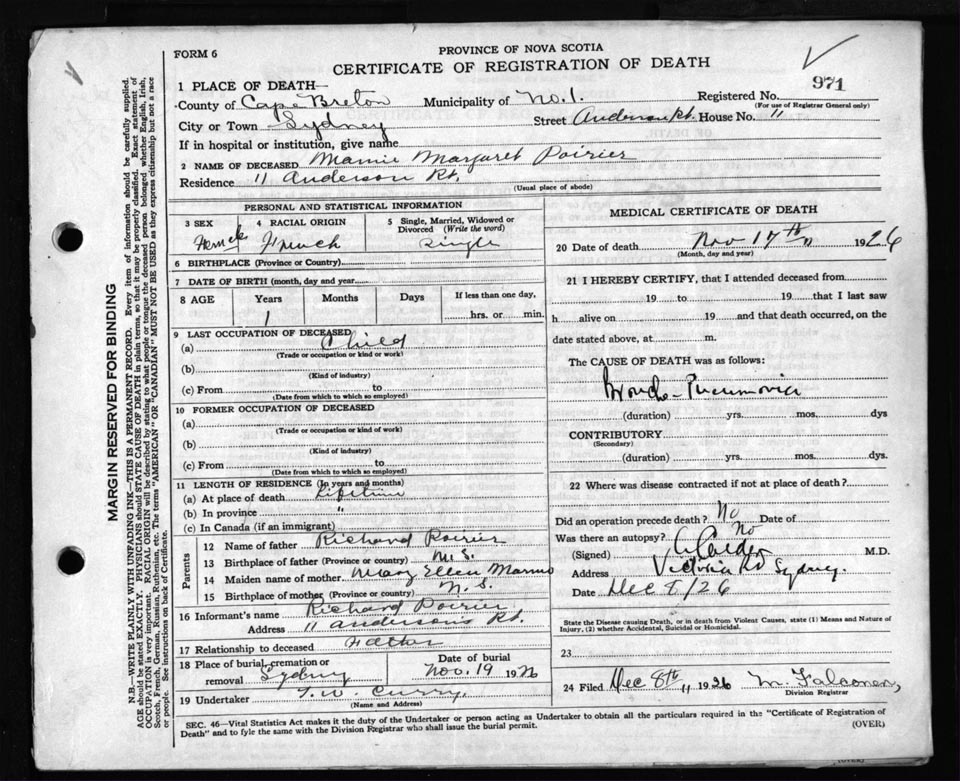 FORM 6
PROVINCE OF NOVA SCOTIA
CERTIFICATE OF REGISTRATION OF DEATH
1 PLACE OF DEATH—
Registered No. 971
(For use of Registrar General only)
County of Cape Breton Municipality of No. 1.
City or Town Sydney Street Anderson Rt. House No. 11
If in hospital or institution, give name
2 NAME OF DECEASED Mamie Margaret Poirier
Residence 11 Anderson Rt.
(Usual place of abode)
PERSONAL AND STATISTICAL INFORMATION
3 SEX 4 RACIAL ORIGIN 5 Single, Married, Widowed or Divorced (Write the word)
Female French Single
6 BIRTHPLACE (Province or Country)
7 DATE OF BIRTH (month, day and year)
8 AGE Years Months Days If less than one day,
1 hrs. or min.
9 LAST OCCUPATION OF DECEASED
(a) Child
(Trade or occupation or kind or work)
(b)
(Kind of industry)
(c) From to
(Date from which to which so employed)
10 FORMER OCCUPATION OF DECEASED
(a)
(Trade or occupation or kind of work)
(b)
(Kind of Industry)
(c) From to
(Date from which to which so employed)
11 LENGTH OF RESIDENCE (In years and months)
(a) At place of death Lifetime
(b) In province "
(c) In Canada (if an immigrant)
Parents
12 Name of father Richard Poirier
13 Birthplace of father (Province or country) N.S.
14 Maiden name of mother Mary Ellen
15 Birthplace of mother (Province or country) N.S.
16 Informant's name Richard Poirier
Address 11 Anderson Rt.
17 Relationship to deceased Father
18 Place of burial, cremation or removal Sydney Date of burial Nov. 19 1926
19 Undertaker T. W. Curry,
(Name and Address)
MEDICAL CERTIFICATE OF DEATH
20 Date of death Nov 17th " 1926
(Month, day and year)
21 I HEREBY CERTIFY, that I attended deceased from
19 to 19 that I last saw
h alive on 19 and that death occurred, on the
date stated above, at m.
The CAUSE OF DEATH was as follows:
Broncho-Pneumonia
(duration) yrs. mos. dys
CONTRIBUTORY
(Secondary)
(duration) yrs. mos. dys.
22 Where was disease contracted if not at place of death?
Did an operation precede death? No Date of
Was there an autopsy? No
(Signed) M.D.
Address Victoria Rd Sydney.
Date Dec 8/26
State the Disease causing Death, or in death from Violent Causes, state (1) Means and Nature of
Injury, (2) whether Accidental, Suicidal or Homicidal.
23
24 Filed Dec 8th " 1926 M. Falconer,
Division Registrar
SEC. 46—Vital Statistics Act makes it the duty of the Undertaker or person acting as Undertaker to obtain all the particulars required in the "Certificate of Registration of
Death" and to fyle the same with the Division Registrar who shall issue the burial permit.
(OVER)
MARGIN RESERVED FOR BINDING
N.B.—WRITE PLAINLY WITH UNFADING INK—THIS IS A PERMANENT RECORD. Every item of information should be carefully supplied.
AGE should be stated EXACTLY. PHYSICIANS should STATE CAUSE OF DEATH in plain terms, so that it may be properly classified. Exact statement of
OCCUPATION is very important. RACIAL ORIGIN will be described by stating to what people or tongue the deceased person belonged whether English, Irish,
Scotch, French, German, Russian, Ruthenian, etc. The terms "AMERICAN" OR "CANADIAN" MUST NOT BE USED as they express citizenship but not a race
or people. See instructions on back of Certificate.